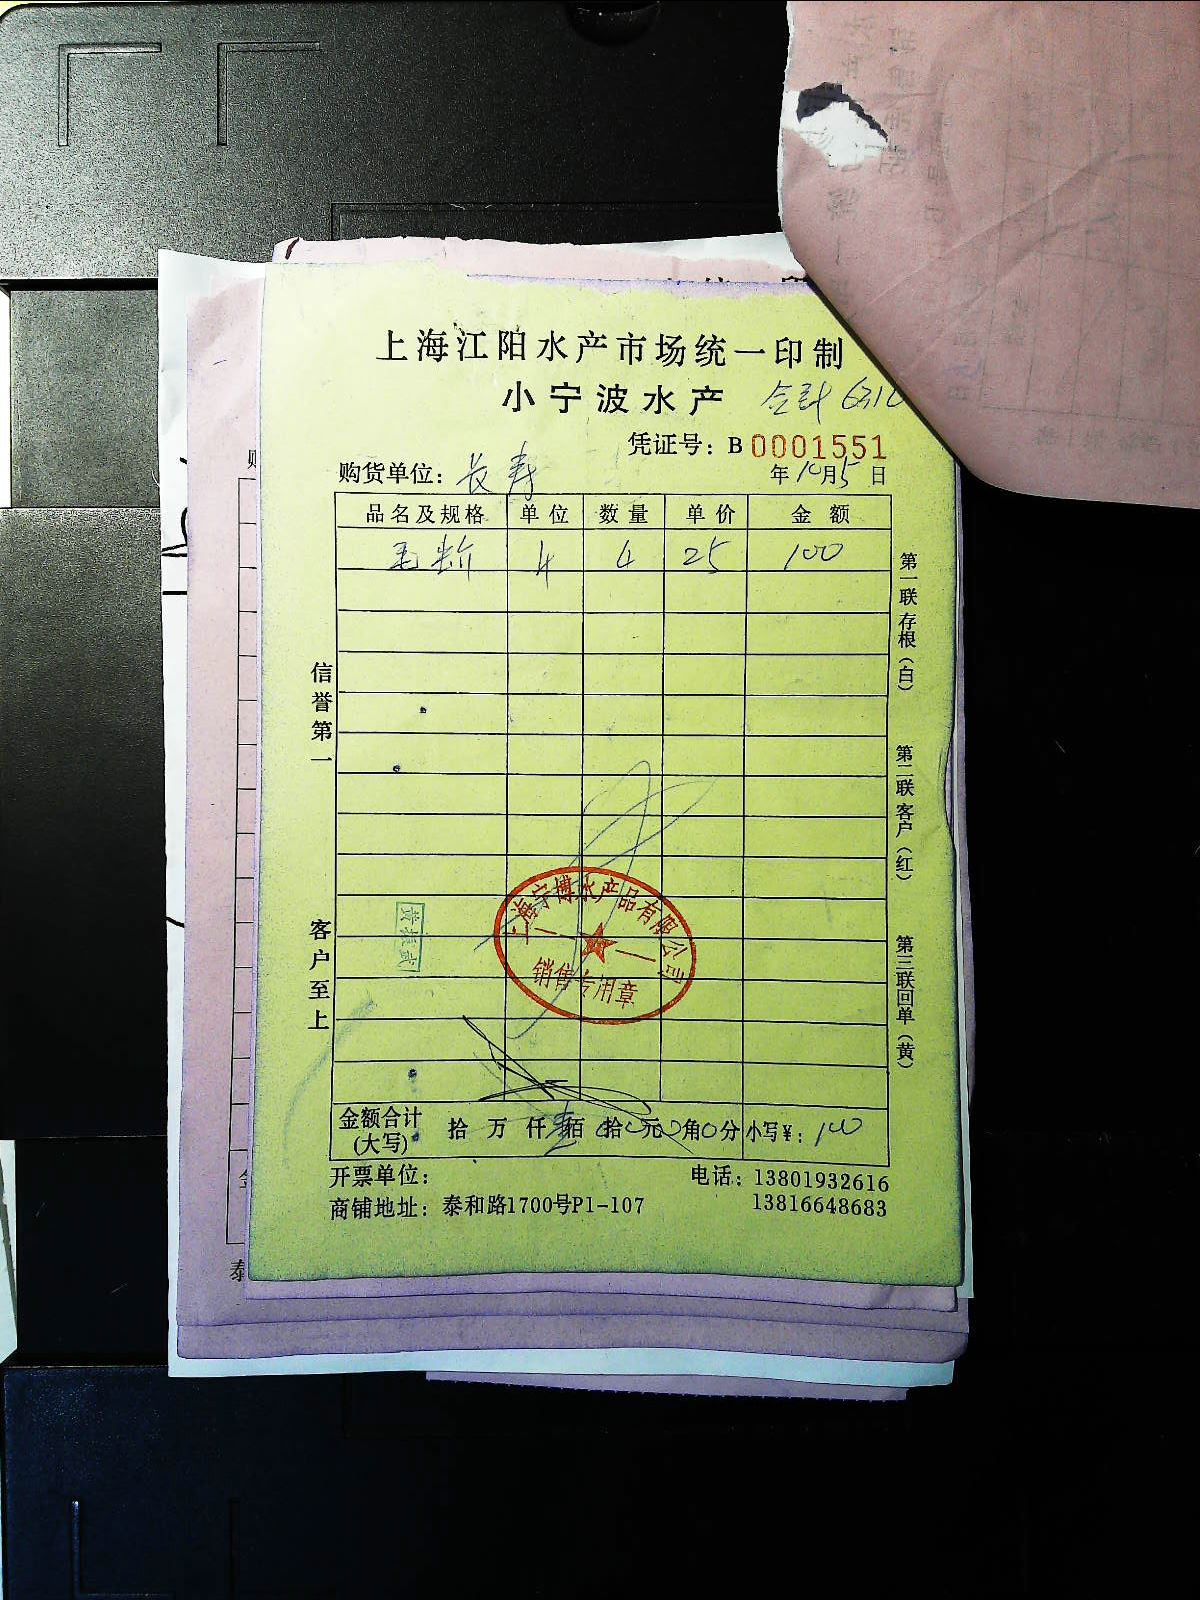 上海江阳水产市场统一印制
小宁波水产 合计
凭证号：B 0001551
购货单位：长寿 年10月5日
品名及规格 单位 数量 单价 金额
4 25 100
信誉第一
客户至上
第一联存根（白）
第二联客户（红）
第三联回单（黄）
上海宁博水产品有限公司
销售专用章
金额合计(大写) 拾 万 仟 壹佰 0拾0元0角0分 小写¥：100
开票单位：
电话：13801932616
商铺地址：泰和路1700号P1-107
13816648683
泰